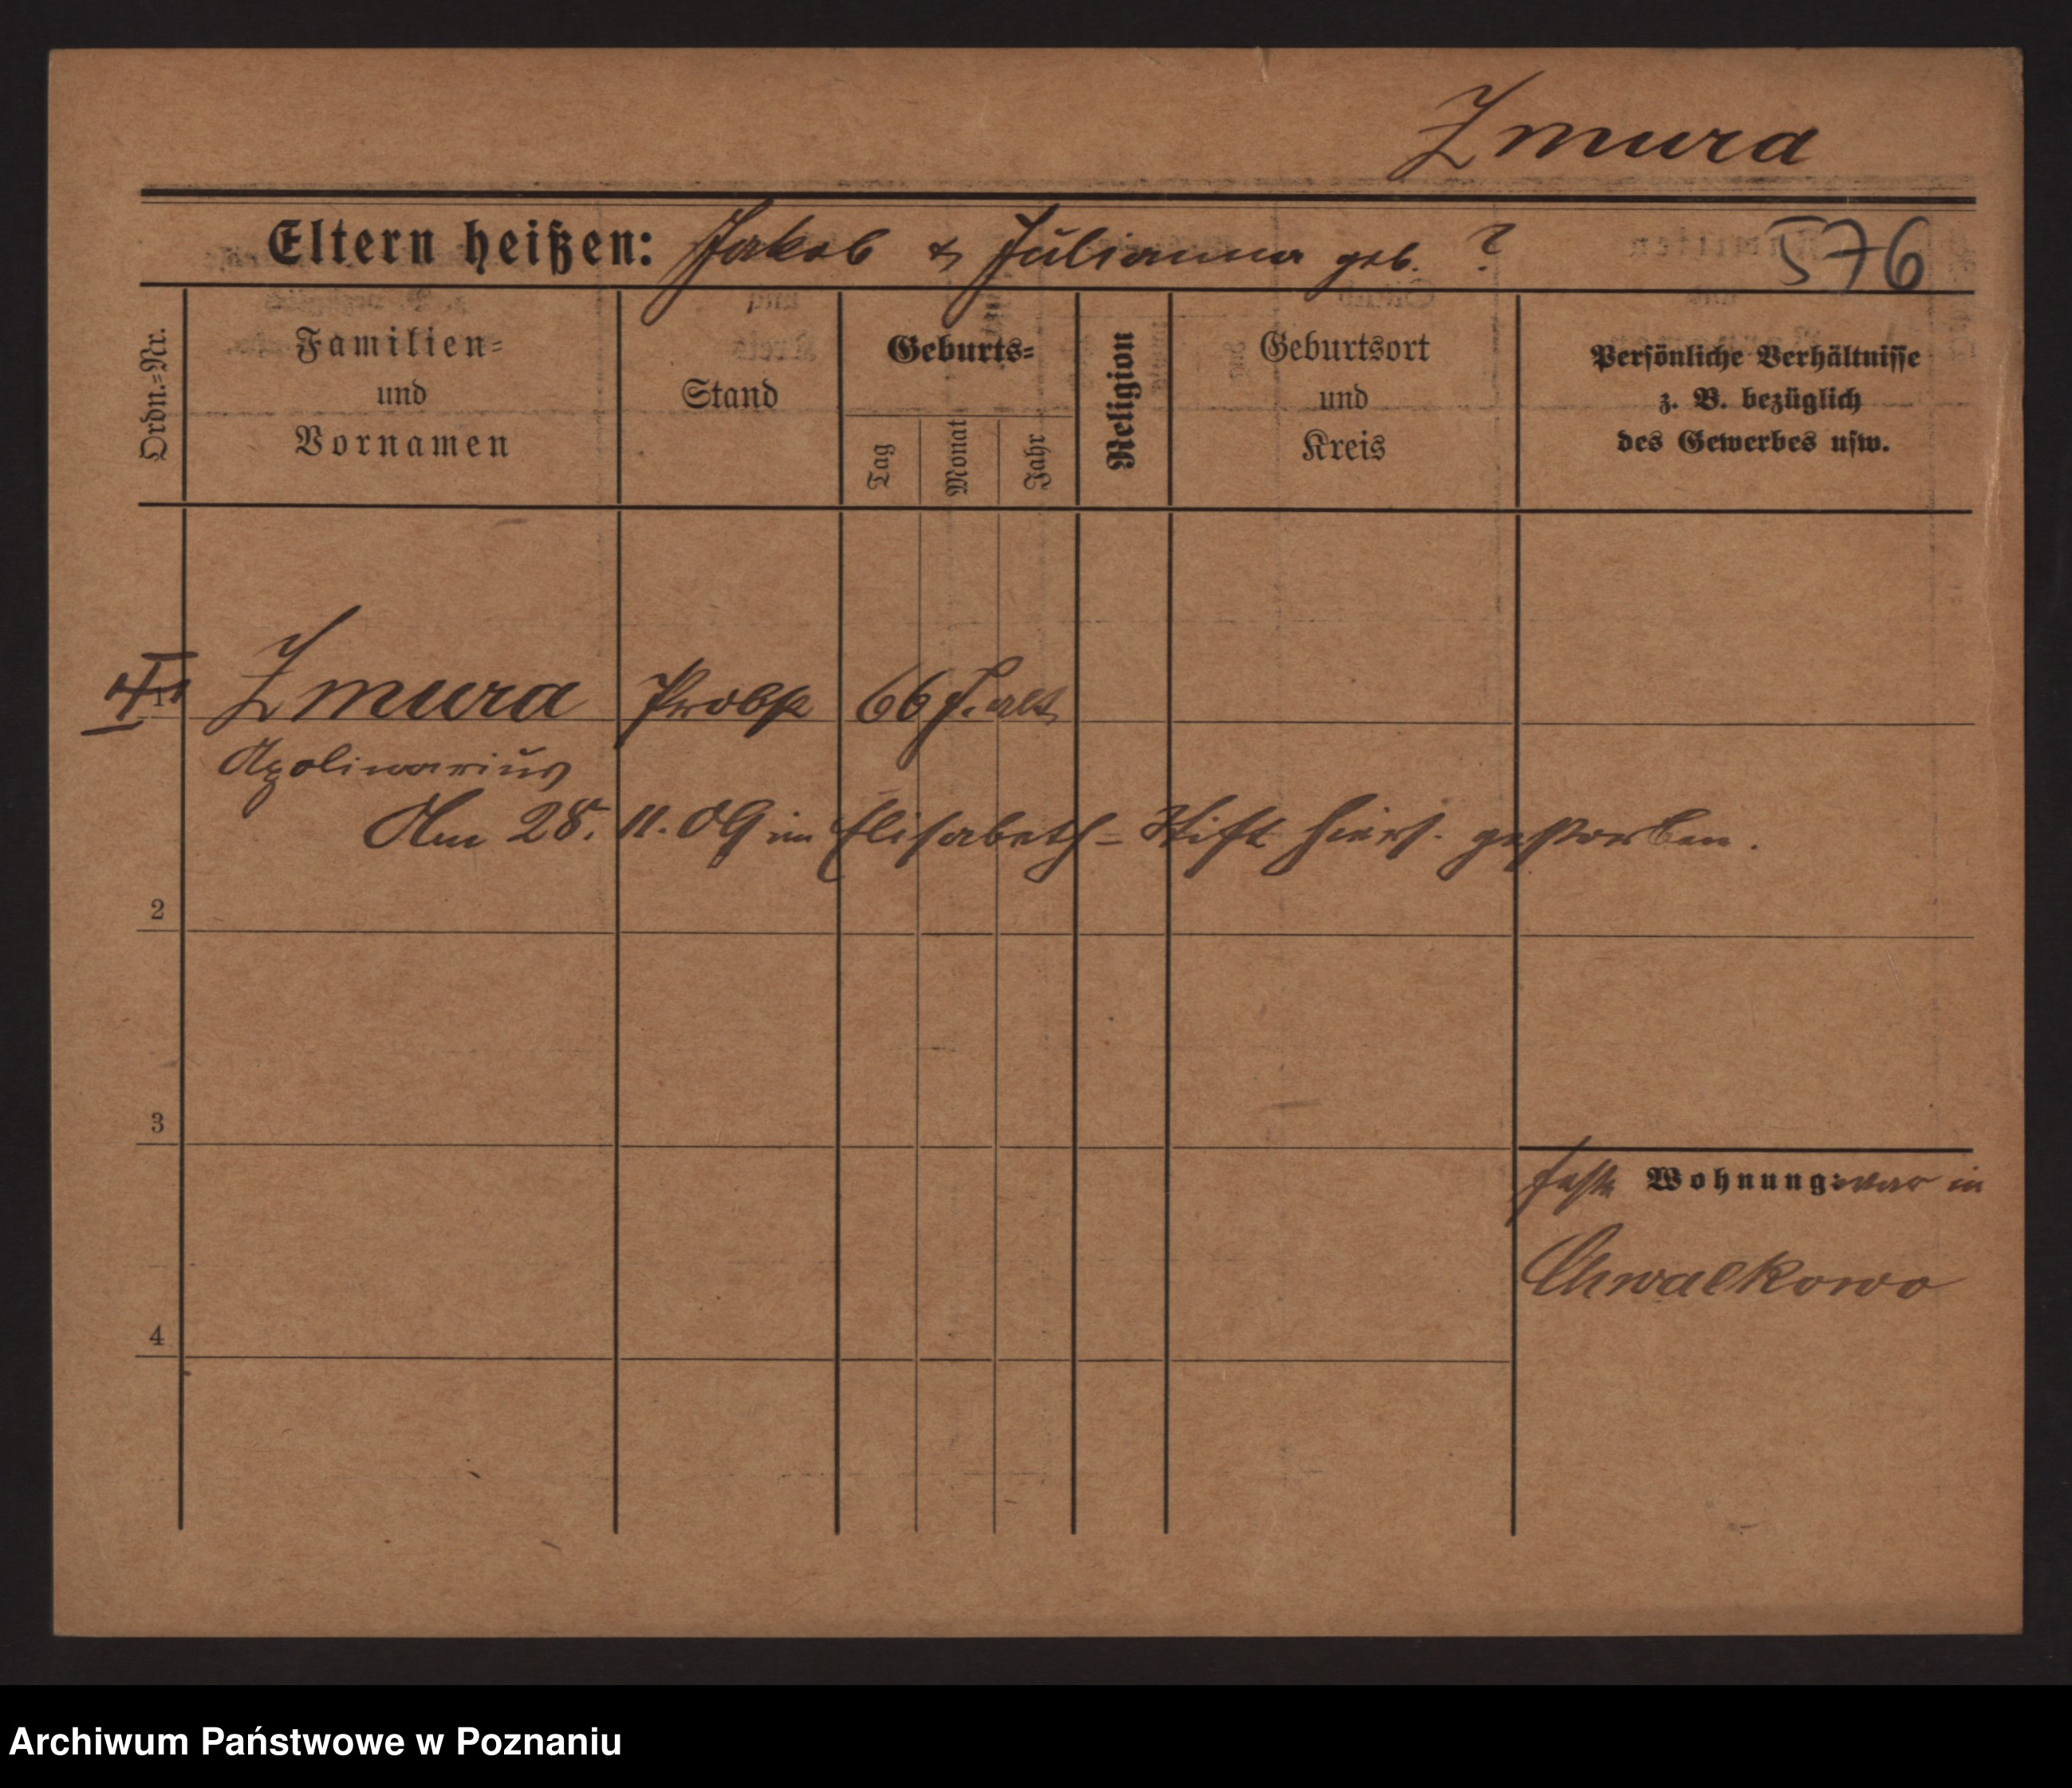 Zmura
Eltern heißen: Jakob & Julianna geb. ?
576
Ordn.=Nr.
Familien=
und
Vornamen
Stand
Geburts=
Tag
Monat
Jahr
Religion
Geburtsort
und
Kreis
Persönliche Verhältnisse
z. B. bezüglich
des Gewerbes usw.
1 Zmura Probst 66 J. alt
Apolinarius
Am 28. 11. 09 im Elisabeth=Stift hiers. gestorben.
2
3
feste Wohnung: war in
Chwalkowo
4
Archiwum Państwowe w Poznaniu